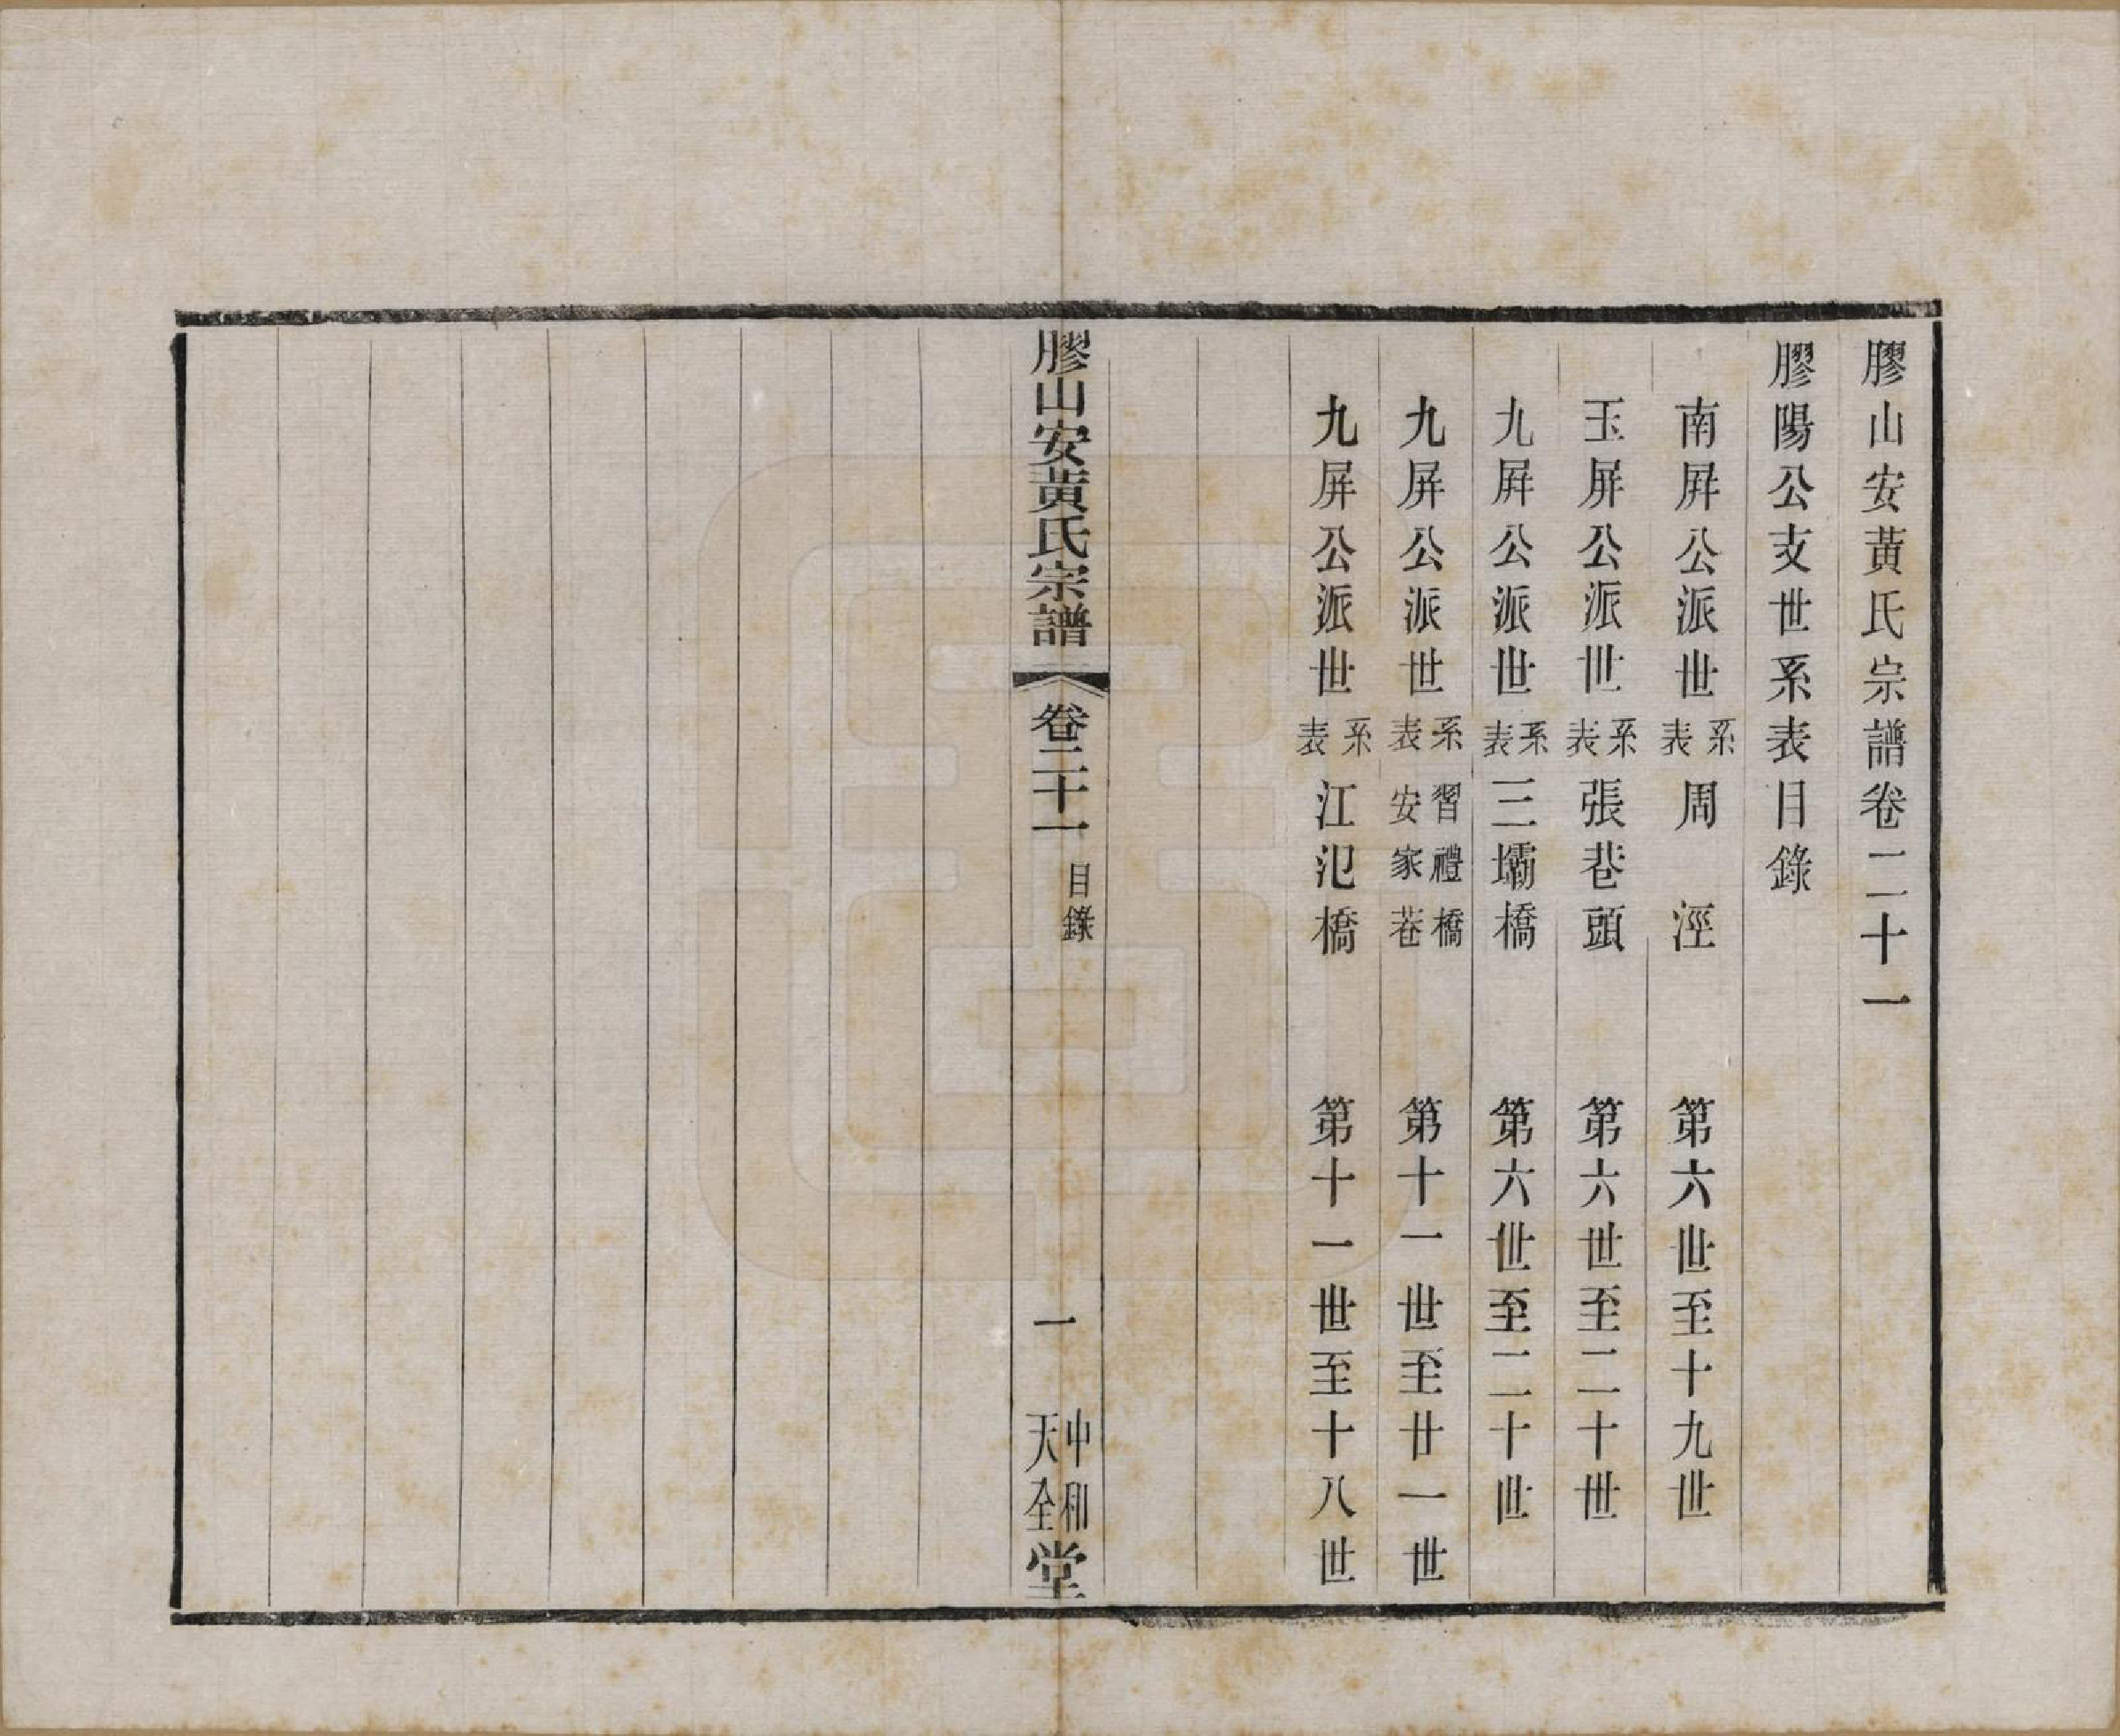 膠山安黃氏宗譜卷二十一
膠陽公支世系表目錄
南屛公派世系表周涇第六世至十九世
玉屛公派世系表張巷頭第六世至二十世
九屛公派世系表三壩橋第六世至二十世
九屛公派世系表習禮橋安家巷第十一世至廿一世
九屛公派世系表江氾橋第十一世至十八世
膠山安黃氏宗譜 卷二十一 目錄 一 中和天全堂